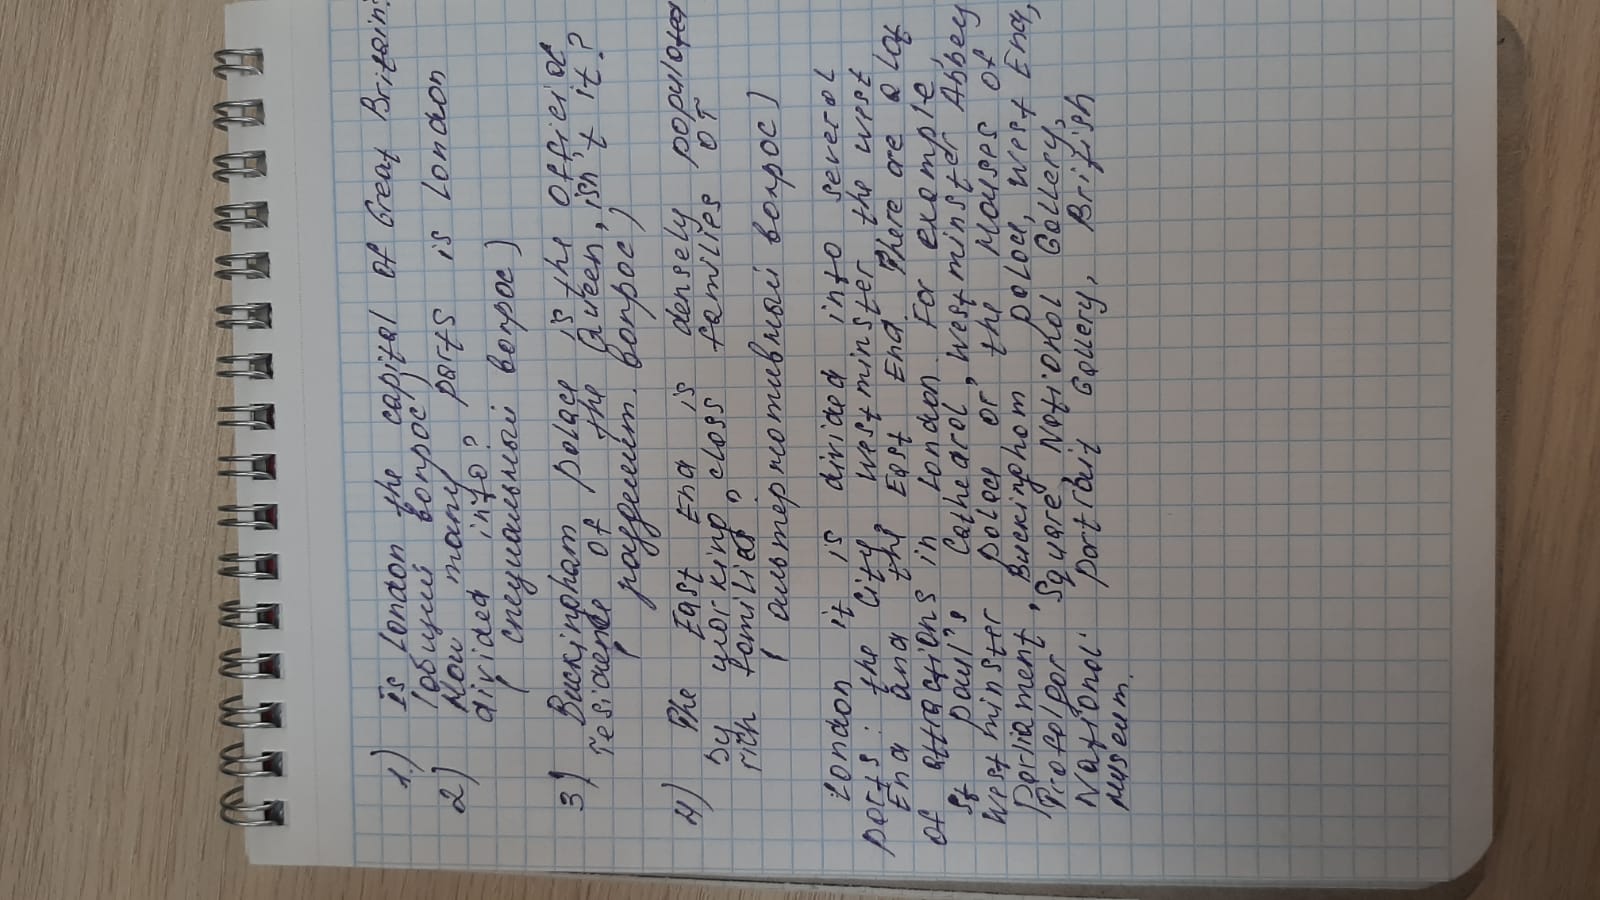 1.) is London the capital of Great Britain?
(общий вопрос)
2) How many parts is London
divided into?
(специальный вопрос)
3) Buckingham palace is the official
residence of the Queen, isn't it?
(разделит. вопрос)
4) The East End is densely populated
by working class families or
rich families?
(альтернативный вопрос)
London it is divided into several
parts: the City Westminster the west
End and the East End. There are a lot
of attractions in London. For example
St Paul's Cathedral, westminster Abbey
westminster palace or the Houses of
Parliament, Buckingham palace, west End,
Square National Gallery,
National Portrait Gallery, British
museum.